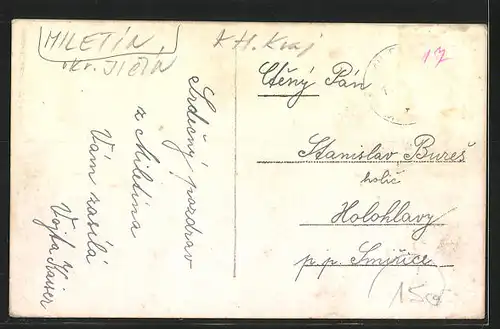 MILETÍN,
okr. JIČÍN
KH. Kraj
17
Srdečný pozdrav
z Miletína
Vám zasílá
Vojta Kaiser
Ctěný Pán
Stanislav Bureš
holič
Holohlavy
p. p. Smiřice